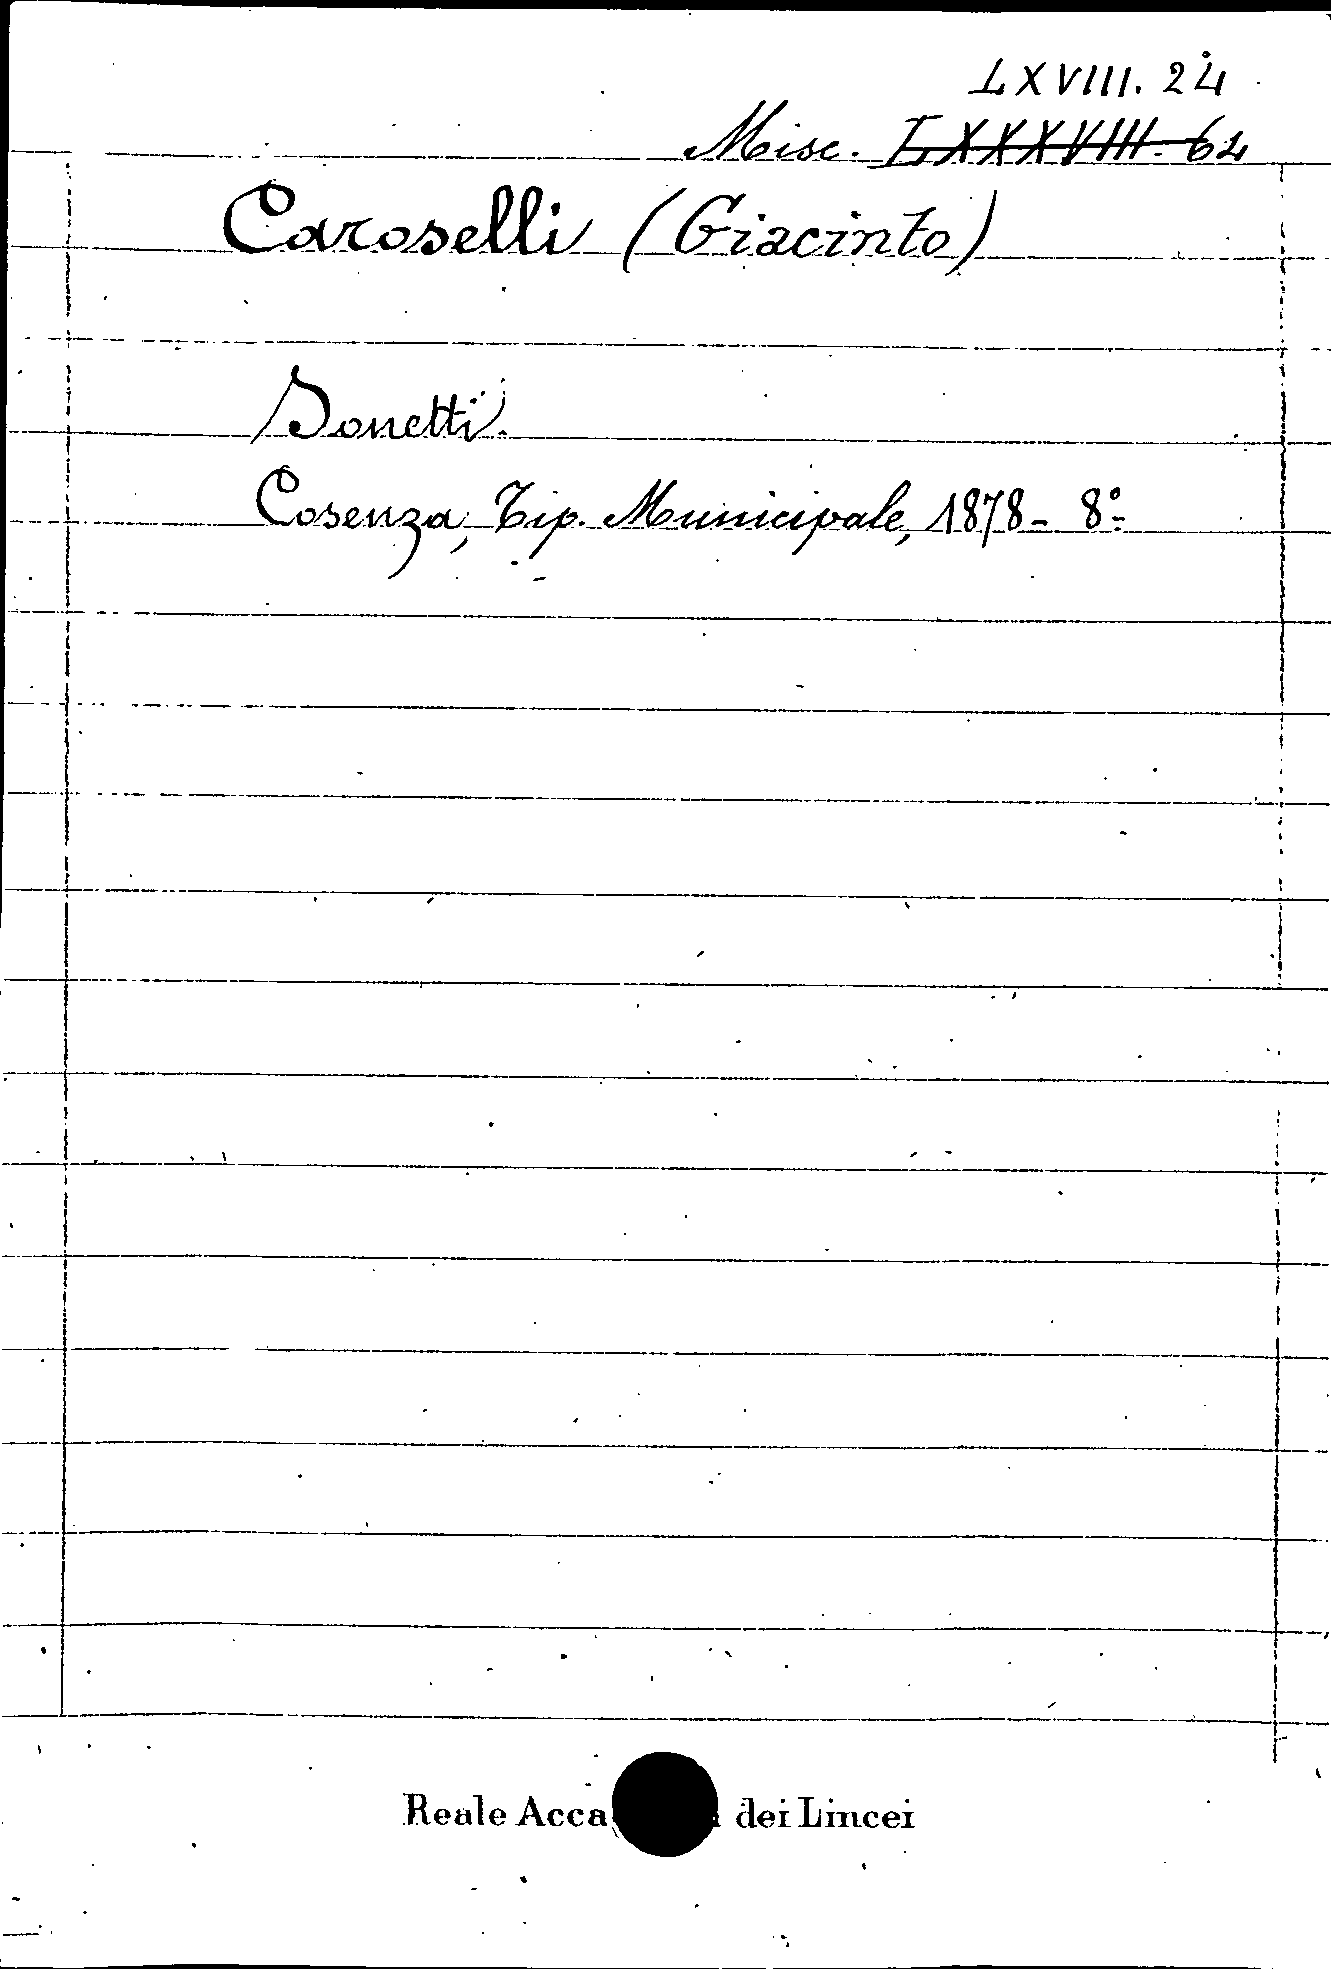 LXVIII. 24
Misc. LXXXVIII. 62
Caroselli (Giacinto)
Sonetti.
Cosenza, Tip. Municipale, 1878 - 8°
Reale Acca dei Lincei